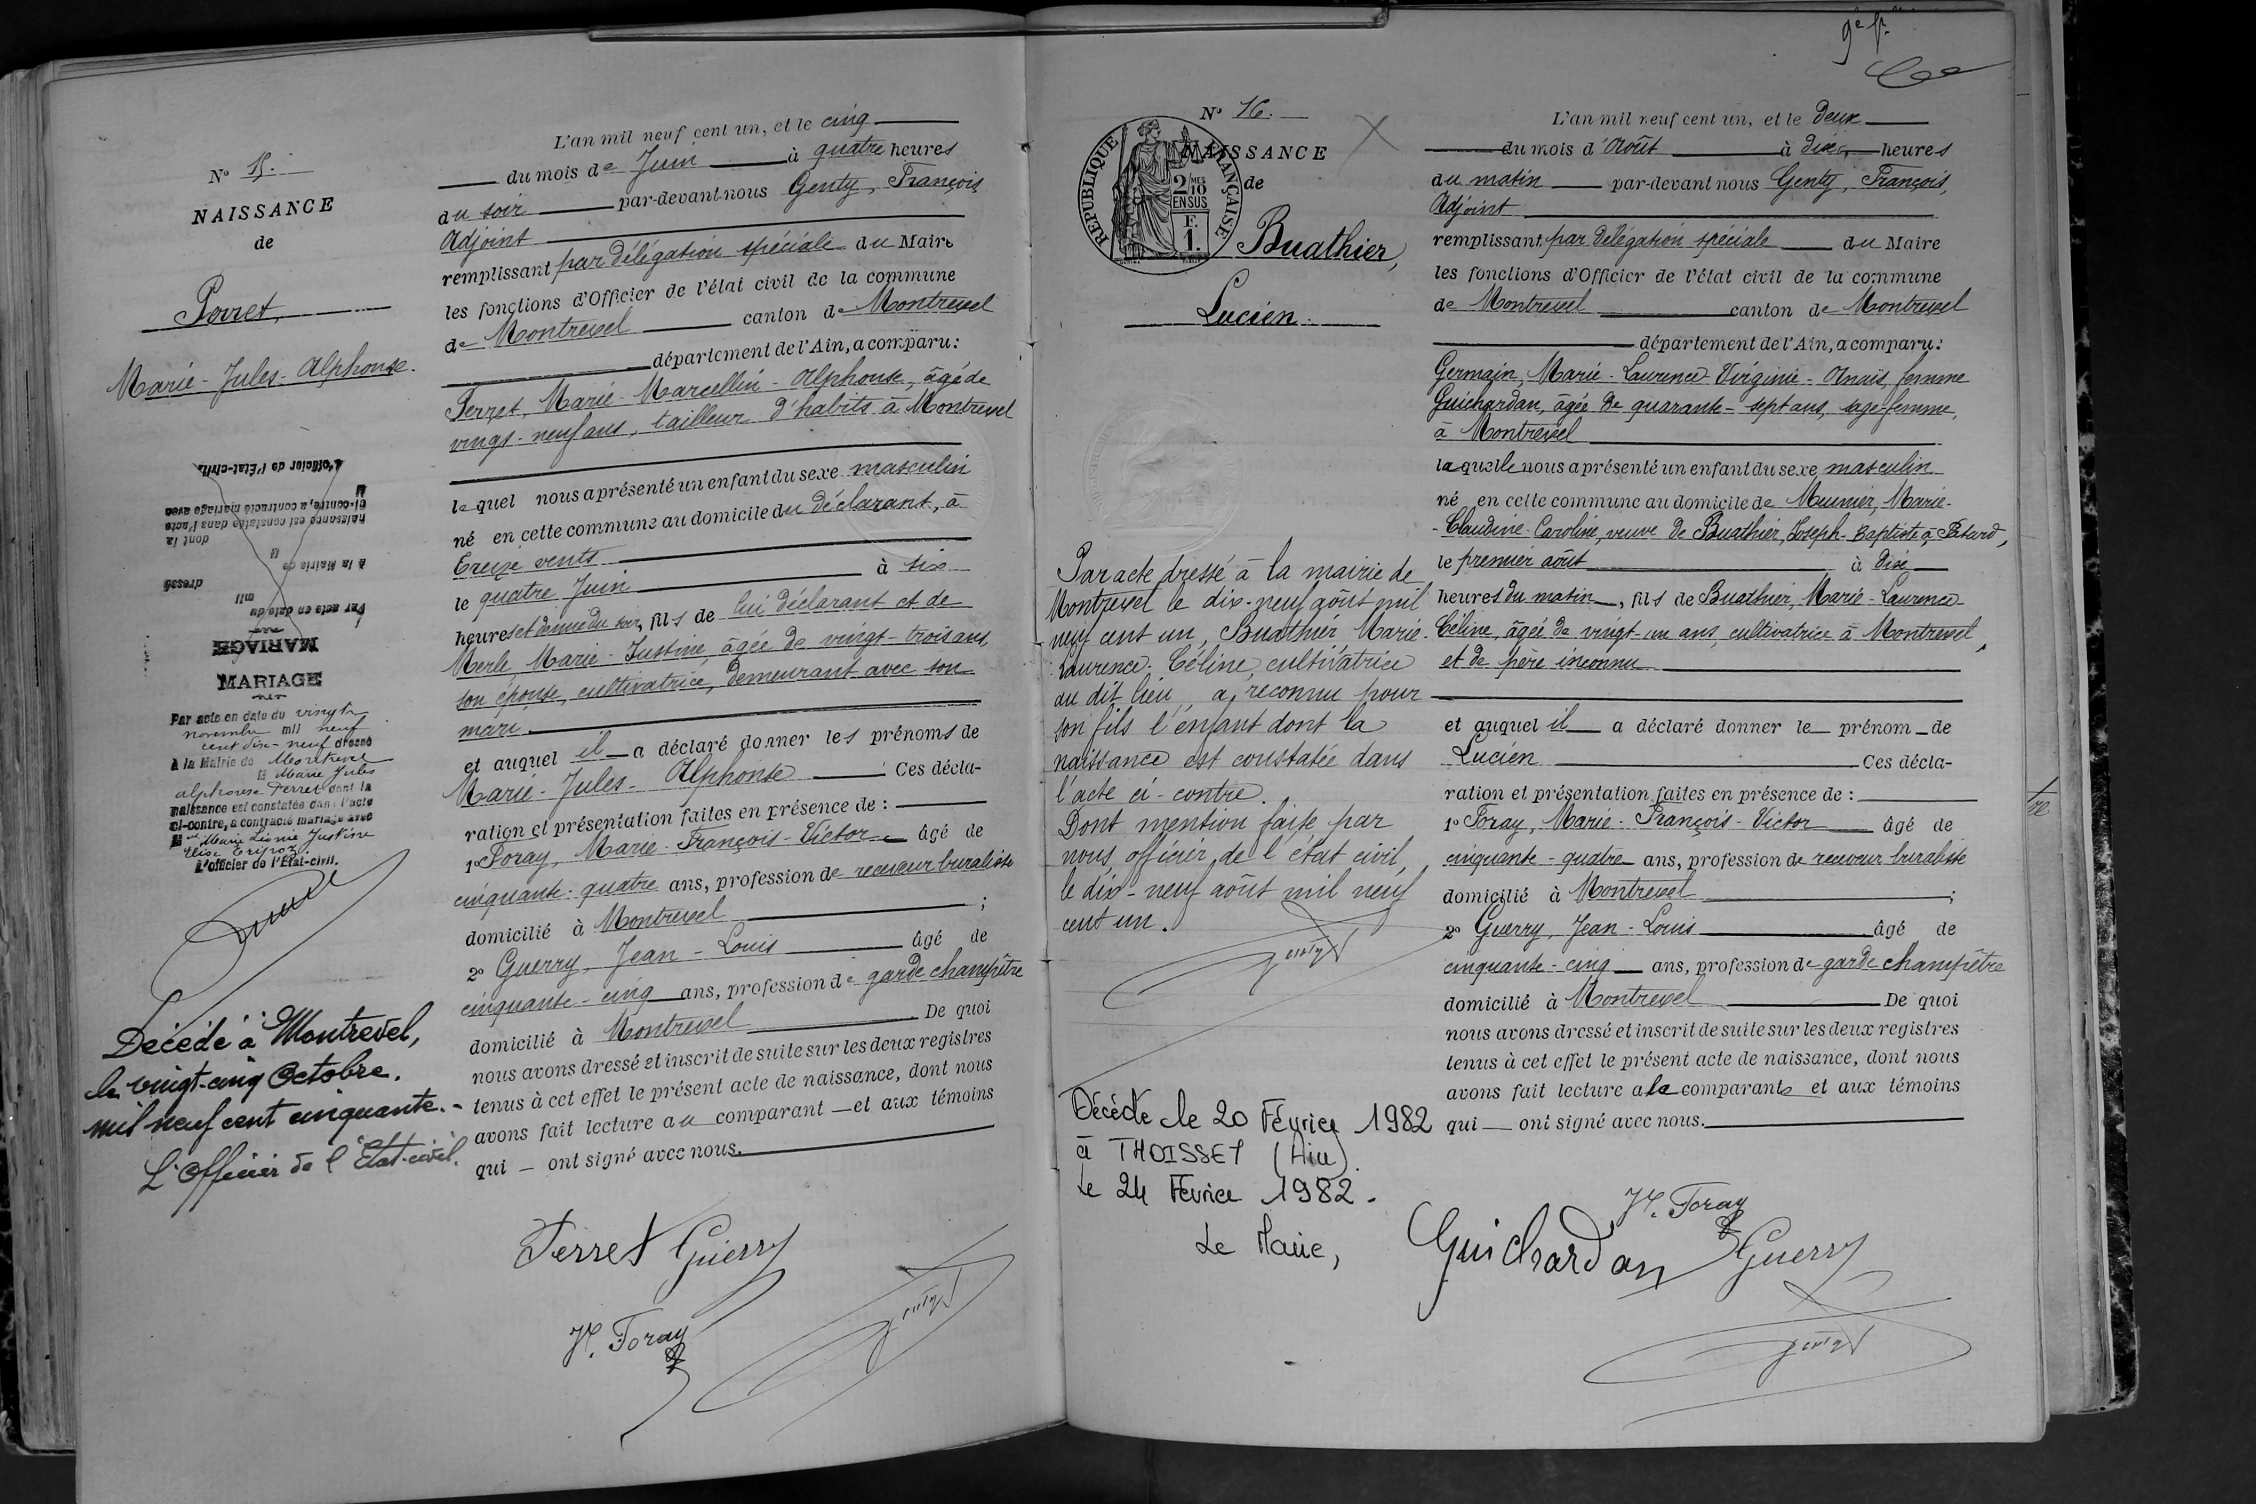 N° 15.
NAISSANCE
de
Perret,
Marie-Jules-Alphonse.
L'officier de l'État-civil,
ci-contre, a contracté mariage avec
naissance est constatée dans l'acte
dont la
à la Mairie de
dressé
mil
Par acte en date du
MARIAGE
MARIAGE
Par acte en date du vingt
novembre mil neuf
cent dix-neuf dressé
à la Mairie de Montrevel
Marie Jules
alphonse Perret dont la
naissance est constatée dans l'acte
ci-contre, a contracté mariage avec
Marie Léonie Justine
Elise
L'officier de l'État-civil.
Décédé à Montrevel,
le vingt-cinq Octobre.
mil neuf cent cinquante.-
L'Officier de l'État-civil.
L'an mil neuf cent un, et le cinq
du mois de Juin à quatre heures
du soir par-devant-nous Genty, François
Adjoint
remplissant par délégation spéciale du Maire
les fonctions d'Officier de l'état civil de la commune
de Montrevel canton de Montrevel
département de l'Ain, a comparu:
Perret, Marie-Marcellin-Alphonse, âgé de
vingt-neuf ans, tailleur d'habits à Montrevel
lequel nous a présenté un enfant du sexe masculin
né en cette commune au domicile du déclarant, à
Treize vents
le quatre Juin à six
heures et demie du soir, fils de lui déclarant et de
Merle Marie-Justine, âgée de vingt-trois ans,
son épouse, cultivatrice, demeurant avec son
mari.
et auquel il a déclaré donner les prénoms de
Marie-Jules-Alphonse Ces décla-
ration et présentation faites en présence de :
1° Foray, Marie-François-Victor âgé de
cinquante-quatre ans, profession de receveur buraliste
domicilié à Montrevel ;
2° Guerry, Jean-Louis âgé de
cinquante-cinq ans, profession de garde champêtre
domicilié à Montrevel De quoi
nous avons dressé et inscrit de suite sur les deux registres
tenus à cet effet le présent acte de naissance, dont nous
avons fait lecture au comparant et aux témoins
qui ont signé avec nous.
Perret Guerry
V. Foray
Genty
N° 16.
RÉPUBLIQUE FRANÇAISE
2/10 MES
EN SUS
F.
1.
NAISSANCE
de
Buathier,
Lucien.
Par acte dressé à la mairie de
Montrevel le dix-neuf août mil
neuf cent un, Buathier Marie-
Laurence-Céline, cultivatrice
au dit lieu, a reconnu pour
son fils l'enfant dont la
naissance est constatée dans
l'acte ci-contre.
Dont mention faite par
nous officier de l'état civil,
le dix-neuf août mil neuf
cent un.
Genty
Décédé le 20 Février 1982
à THOISSEY (Ain).
Le 24 Février 1982.
Le Maire,
L'an mil neuf cent un, et le deux
du mois d'Août à dix heures
du matin par-devant nous Genty, François,
Adjoint
remplissant par délégation spéciale du Maire
les fonctions d'Officier de l'état civil de la commune
de Montrevel canton de Montrevel
département de l'Ain, a comparu:
Germain, Marie-Laurence-Virginie-Anaïs, femme
Guichardan, âgée de quarante-sept ans, sage-femme,
à Montrevel
laquelle nous a présenté un enfant du sexe masculin
né en cette commune au domicile de Meunier, Marie-
-Claudine-Caroline, veuve de Buathier, Joseph-Baptiste, à
le premier août à dix
heures du matin, fils de Buathier, Marie-Laurence-
Céline, âgée de vingt-un ans, cultivatrice à Montrevel,
et de père inconnu
et auquel il a déclaré donner le prénom de
Lucien Ces décla-
ration et présentation faites en présence de :
1° Foray, Marie-François-Victor âgé de
cinquante-quatre ans, profession de receveur buraliste
domicilié à Montrevel ;
2° Guerry, Jean-Louis âgé de
cinquante-cinq ans, profession de garde champêtre
domicilié à Montrevel De quoi
nous avons dressé et inscrit de suite sur les deux registres
tenus à cet effet le présent acte de naissance, dont nous
avons fait lecture à la comparante et aux témoins
qui ont signé avec nous.
V. Foray
Guichardan Guerry
Genty